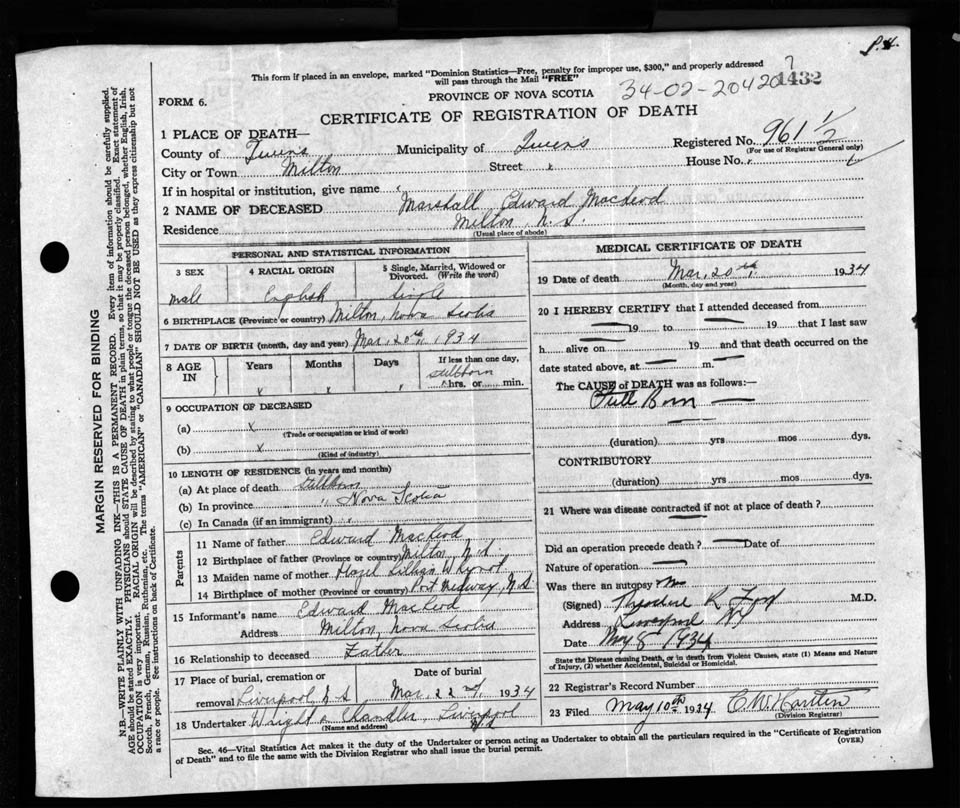 P.4.
This form if placed in an envelope, marked "Dominion Statistics—Free, penalty for improper use, $300," and properly addressed
will pass through the Mail "FREE"
34-02-204207
1432
PROVINCE OF NOVA SCOTIA
FORM 6.
CERTIFICATE OF REGISTRATION OF DEATH
1 PLACE OF DEATH—
County of Queens Municipality of Queens Registered No. 961 1/2
(For use of Registrar General only)
City or Town Milton Street x House No. x
If in hospital or institution, give name
2 NAME OF DECEASED Marshall Edward MacLeod
Residence Milton N.S.
(Usual place of abode)
PERSONAL AND STATISTICAL INFORMATION
3 SEX 4 RACIAL ORIGIN 5 Single, Married, Widowed or Divorced. (Write the word)
male English Single
6 BIRTHPLACE (Province or country) Milton, Nova Scotia
7 DATE OF BIRTH (month, day and year) Mar. 20th, 1934
8 AGE IN Years Months Days If less than one day,
x x stillborn hrs. or min.
9 OCCUPATION OF DECEASED
(a) x
(Trade or occupation or kind of work)
(b) x
(Kind of industry)
10 LENGTH OF RESIDENCE (in years and months)
(a) At place of death stillborn
(b) In province " Nova Scotia
(c) In Canada (if an immigrant)
Parents
11 Name of father Edward MacLeod
12 Birthplace of father (Province or country) Milton, N.S.
13 Maiden name of mother Hazel Lillian Whynot
14 Birthplace of mother (Province or country) Port Medway, N.S.
15 Informant's name Edward MacLeod
Address Milton, Nova Scotia
16 Relationship to deceased Father
17 Place of burial, cremation or removal Liverpool N.S Date of burial Mar. 22nd, 1934
18 Undertaker Wright & Chandler, Liverpool N.S
(Name and address)
MEDICAL CERTIFICATE OF DEATH
19 Date of death Mar. 20th, 1934
(Month, day and year)
20 I HEREBY CERTIFY that I attended deceased from
— 19 to — 19 that I last saw
h alive on — 19 — and that death occurred on the
date stated above, at — m. —
The CAUSE of DEATH was as follows:—
Still Born —
(duration) yrs mos dys.
CONTRIBUTORY
(duration) yrs mos dys.
21 Where was disease contracted if not at place of death?
Did an operation precede death? — Date of
Nature of operation —
Was there an autopsy no
(Signed) Theodore R Ford M.D.
Address Liverpool NS
Date May 8 1934
State the Disease causing Death, or in death from Violent Causes, state (1) Means and Nature of Injury, (2) whether Accidental, Suicidal or Homicidal.
22 Registrar's Record Number
23 Filed May 10th 1934 C. W. Hartlen
(Division Registrar)
Sec. 46—Vital Statistics Act makes it the duty of the Undertaker or person acting as Undertaker to obtain all the particulars required in the "Certificate of Registration
of Death" and to file the same with the Division Registrar who shall issue the burial permit.
(OVER)
MARGIN RESERVED FOR BINDING
N.B.—WRITE PLAINLY WITH UNFADING INK—THIS IS A PERMANENT RECORD. Every item of information should be carefully supplied.
AGE should be stated EXACTLY. PHYSICIANS should STATE CAUSE OF DEATH in plain terms, so that it may be properly classified. Exact statement of
OCCUPATION is very important. RACIAL ORIGIN will be described by stating to what people or tongue the deceased person belonged, whether English, Irish,
Scotch, French, German, Russian, Ruthenian, etc. The terms "AMERICAN" or "CANADIAN" SHOULD NOT BE USED as they express citizenship but not
a race or people. See instructions on back of Certificate.